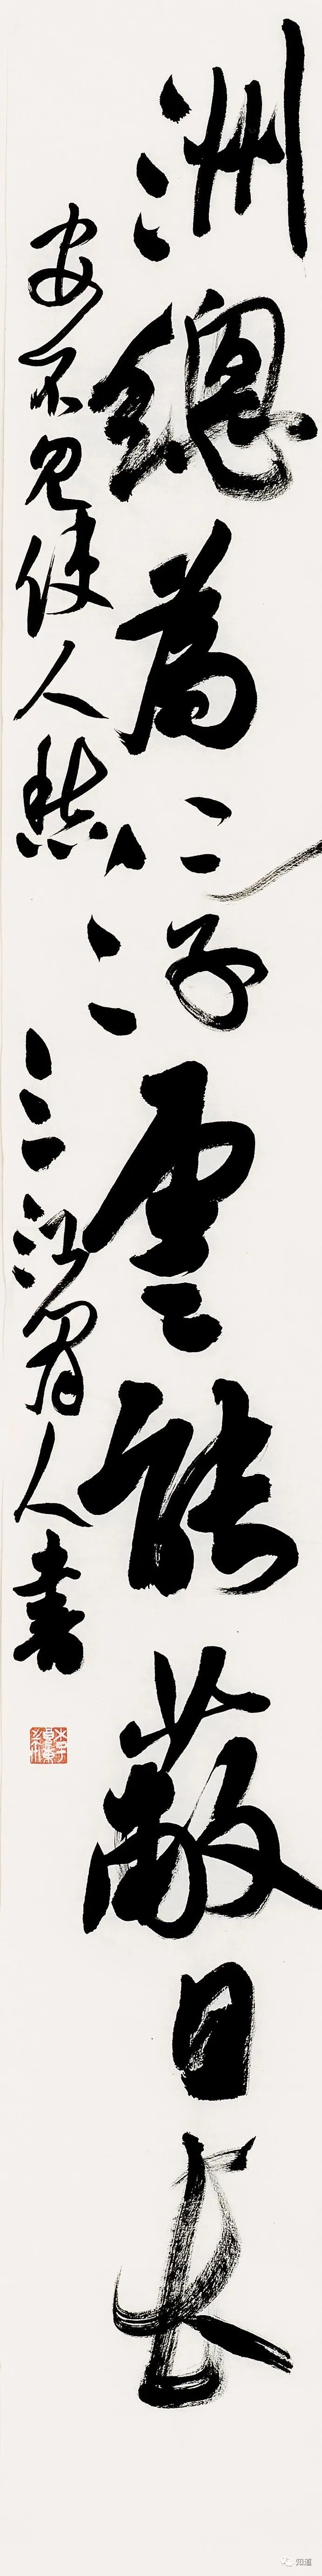 洲總為浮雲能蔽日長
安不見使人愁 三江人書